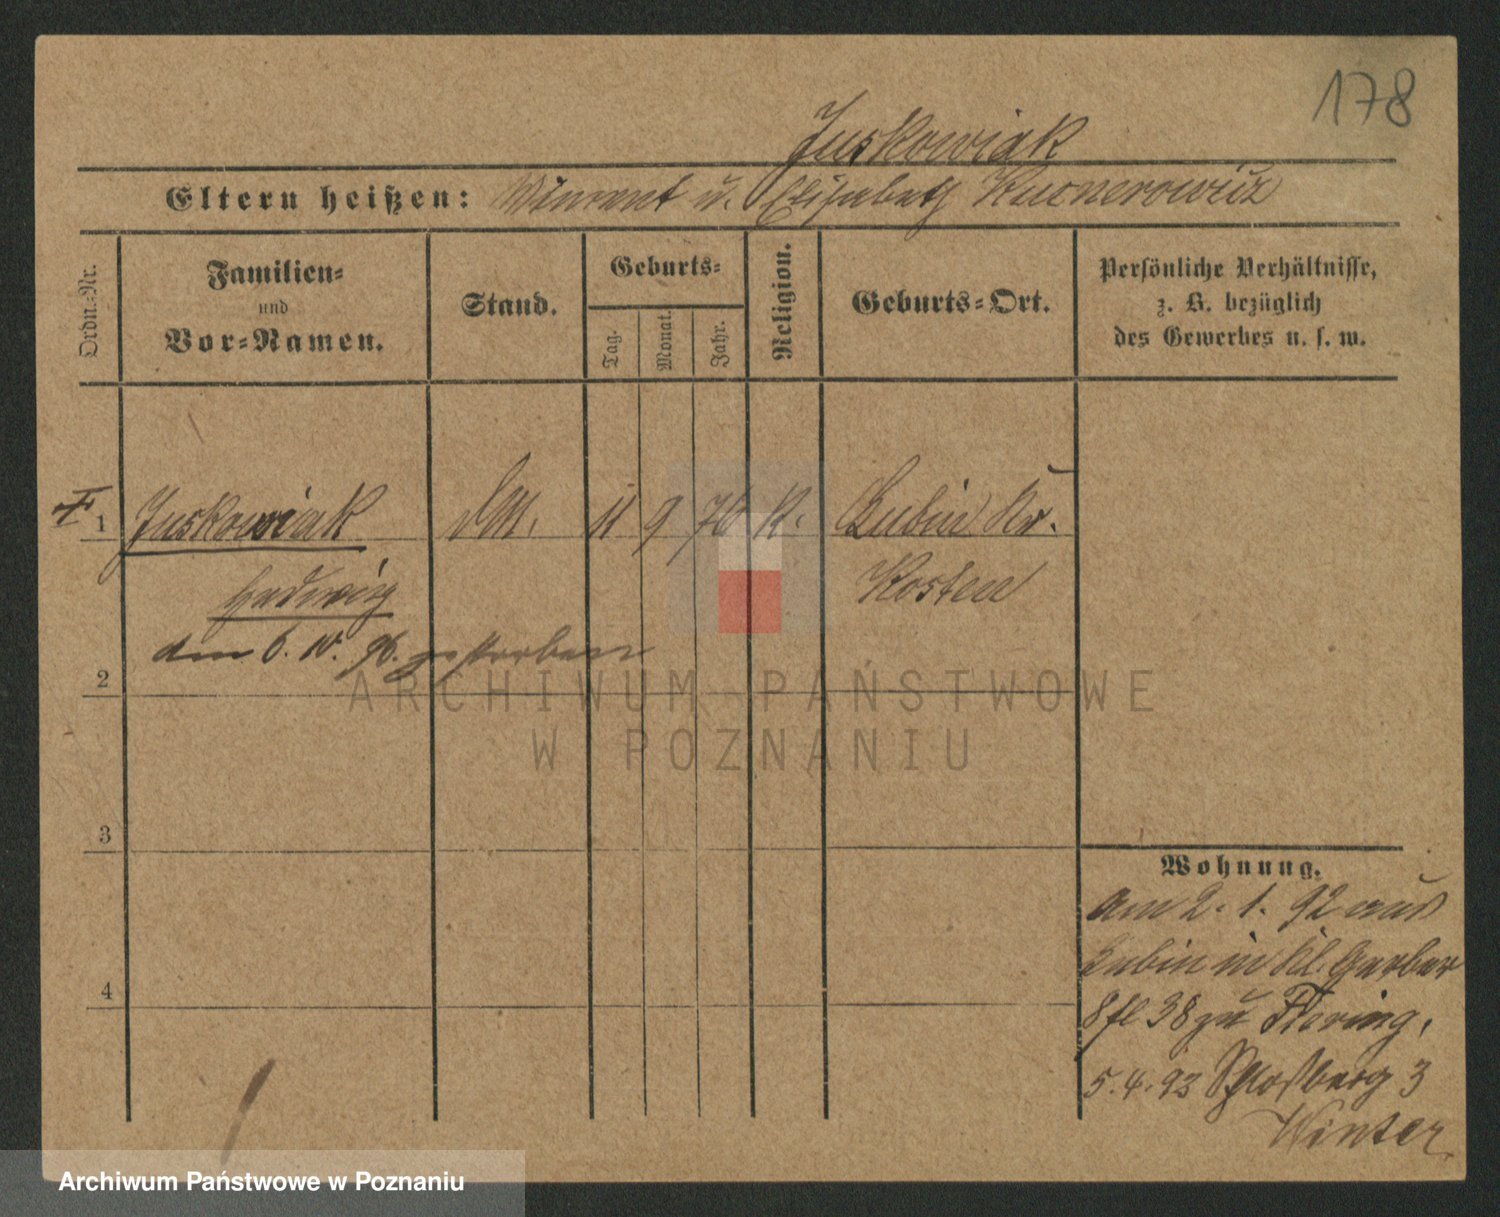 178
Juskowiak
Eltern heißen: Vincent u. Elisabeth Kucnerowicz
Ordn.-Nr.
Familien-
und
Vor-Namen.
Stand.
Geburts-
Tag.
Monat.
Jahr.
Religion.
Geburts-Ort.
Persönliche Verhältnisse,
z. B. bezüglich
des Gewerbes u. s. w.
1 Juskowiak 11 9 76 K. Lubin Kr.
Hedwig Kosten
den 6. 10. 96. gestorben
2
3
4
Wohnung.
am 2. 1. 92 aus
Lubin in Kl. Gerber
8 fl 38 zu Floring,
5. 4. 93 Schloßberg 3
Winter
ARCHIWUM PAŃSTWOWE
W POZNANIU
Archiwum Państwowe w Poznaniu